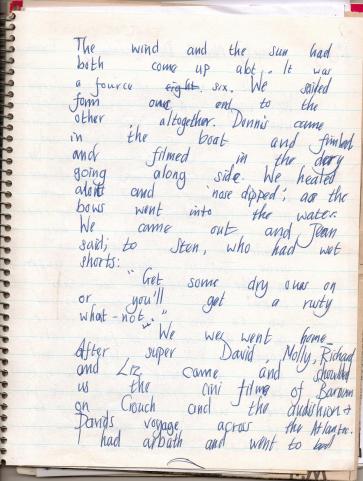 The wind and the sun had
both come up abt. It was
a fource eight. six. We sailed
form one end to the
other altogether. Dennis came
in the boat and fimbd
and filmed in the dory
going along side. We healed
and 'nose dipped', as the
bows went into the water.
We came out and Jean
said; to Sten, who had wet
shorts:
"Get some dry ones on
or you'll get a rusty
what-not."
"We wes went home.
After super David, Molly, Richard
and Liz came and showed
us the cini films of Barown
on Crouch and the
Davids voyage across the Atlantic.
had a bath and went to bed